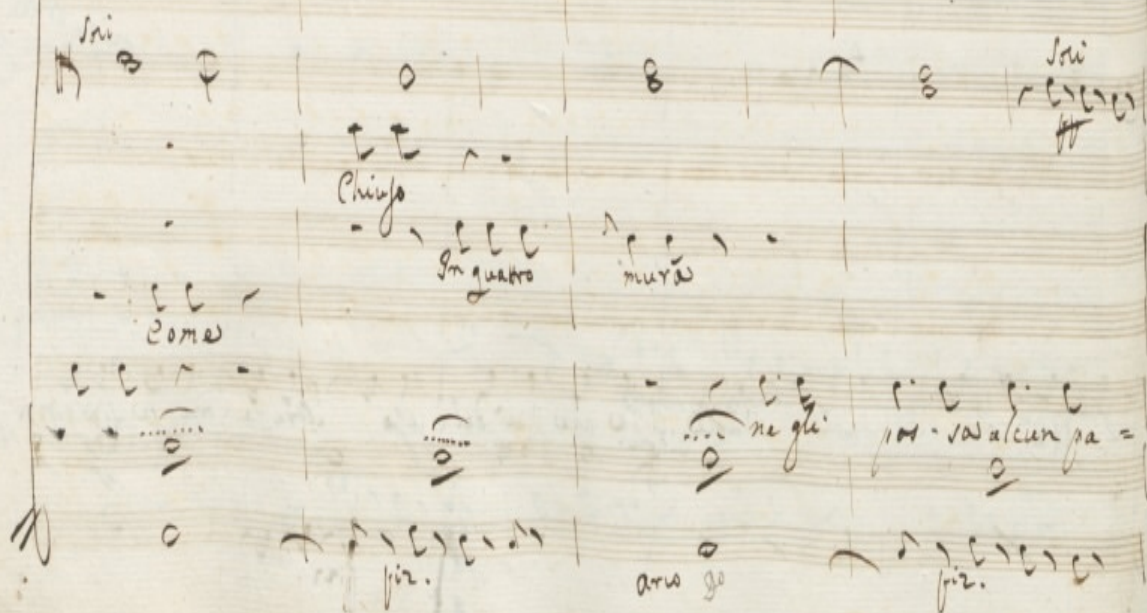 Soli
Soli
ff
Chiuso
In quatro mura
Come
ne gli pos - sa alcun pa =
piz.
arco
piz.